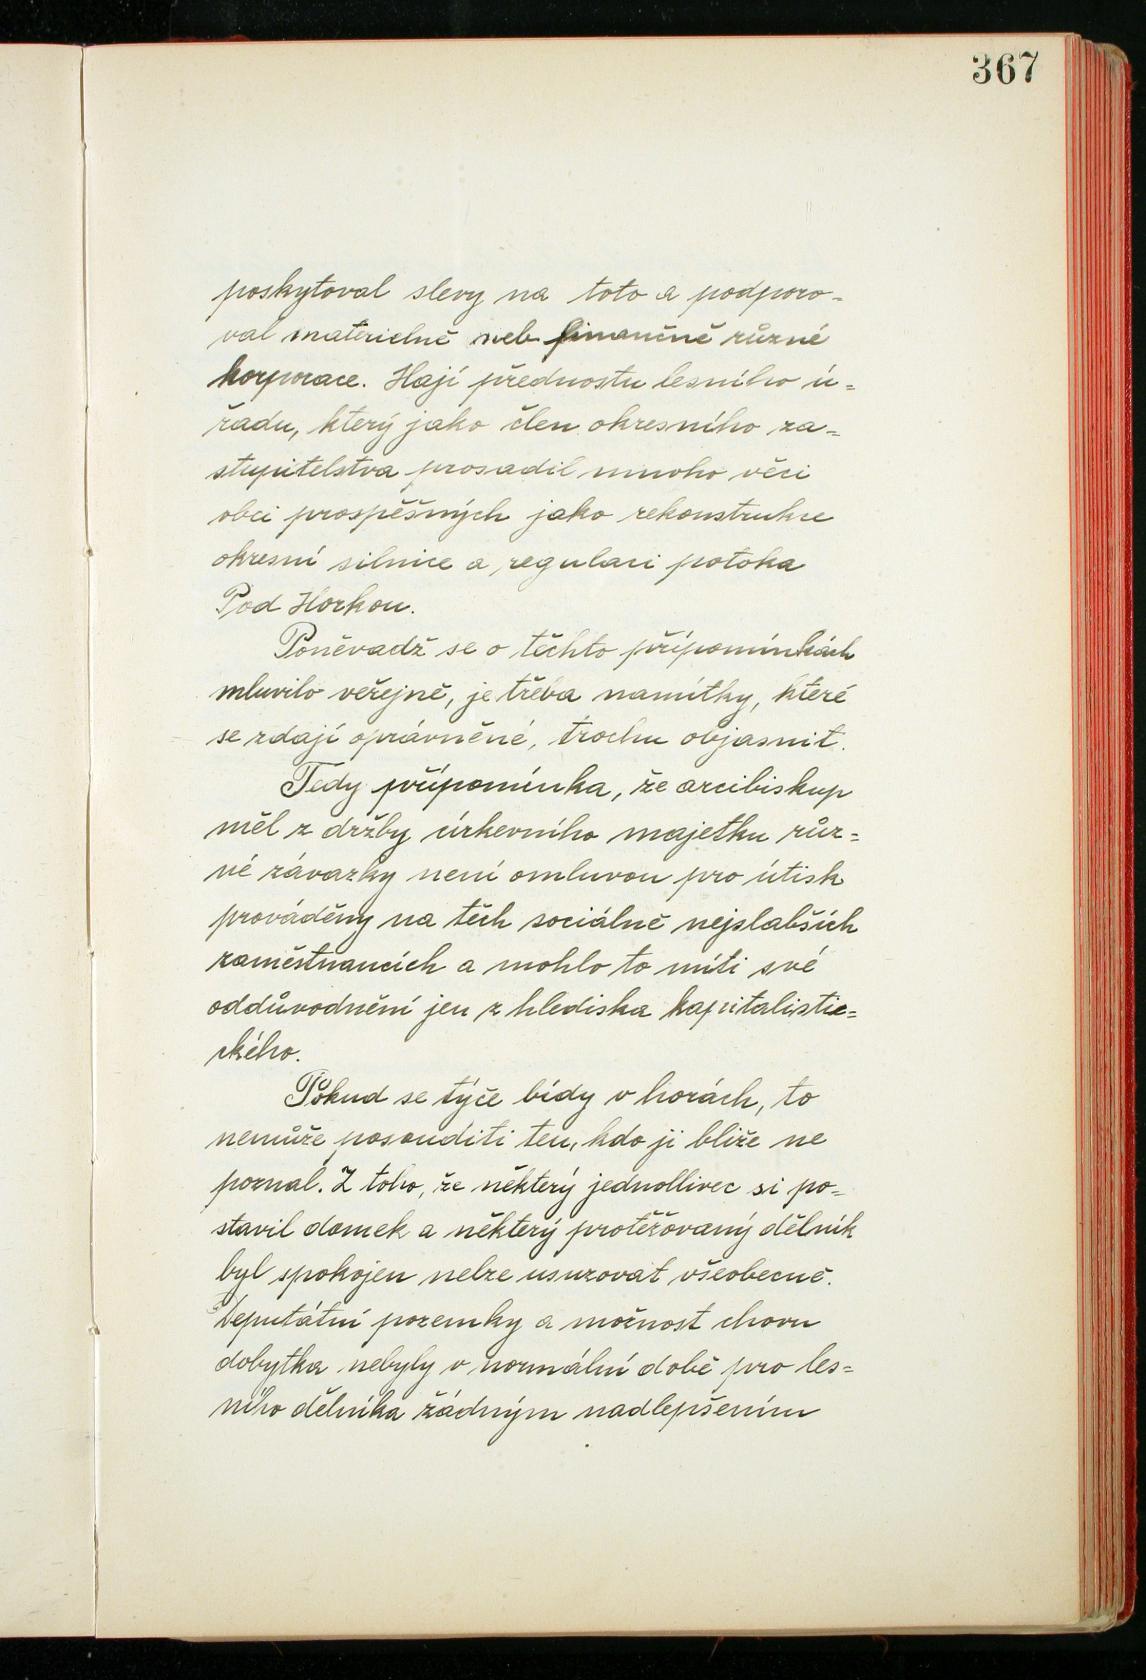 367
poskytoval slevy na toto a podporo-
val materielně neb finančně různé
korporace. Hají přednostu lesního ú-
řadu, který jako člen okresního za-
stupitelstva prosadil mnoho věci
obci prospěšných jako rekonstrukce
okresní silnice a regulaci potoka
Pod Horkou.
Poněvadž se o těchto připomínkách
mluvilo veřejně, je třeba namítky, které
se zdají oprávněné, trochu objasnit.
Tedy připomínka, že arcibiskup
měl z držby církevního majetku růz-
né závazky není omluvou pro útisk
prováděny na těch sociálně nejslabších
zaměstnancích a mohlo to míti své
oddůvodnění jen z hlediska kapitalistic-
ckého.
Pokud se týče bídy v horách, to
nemůže posouditi ten, kdo ji blíže ne
poznal. Z toho, že některý jednollivec si po-
stavil domek a některý protěžovaný dělník
byl spokojen nelze usuzovat všeobecně.
Deputátní pozemky a možnost chovu
dobytka nebyly v normální době pro les-
ního dělníka žádným nadlepšením